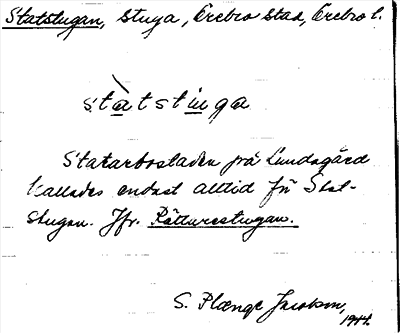 Statstugan, stuga, Örebro stad, Örebro l.
statstuga
Statarbostaden på Lundagård
kallades endast alltid för Stat-
stugan. Jfr. Rätturestugan.
S. Plænge Jacobson,